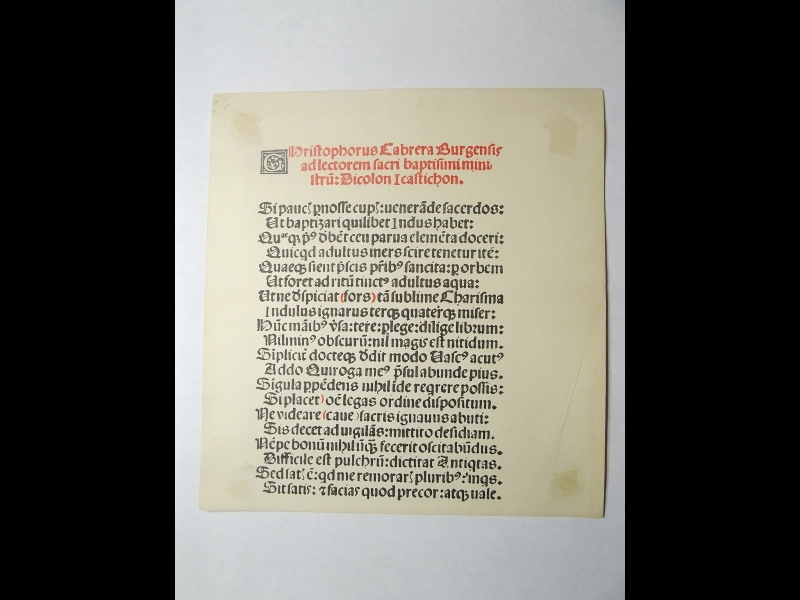 Christophorus Cabrera Burgensis
ad lectorem sacri baptismi mini
strũ: Dicolon Icastichon.
Si paucꝭ p̱nosse cupꝭ: uenerãde sacerdos:
Ut baptizari quilibet Indus habet:
Quæq; pꝰ d̃bẽt ceu parua elemẽta doceri:
Quicq̃d adultus iners scire tenetur itẽ:
Quaeq; sient p̃scis pr̃ibꝰ sancita: p̱ orbem
Ut foret ad ritũ tinctꝰ adultus aqua:
Ut ne d̃spiciat (fors) tã sublime Charisma
Indulus ignarus terq; quaterq; miser:
Hũc mãibꝰ v̓sa: tere: p̱lege: dilige librum:
Nil minꝰ obscurũ: nil magis est nitidum.
Sĩpliciẽ docteq; d̃dit modo Vascꝰ acutꝰ
Addo Quiroga meꝰ p̃sul abunde pius.
Sĩgula p̱pẽdens nihil ĩde reqrere possis:
Si placet) oẽ legas ordine dispositum.
Ne videare (caue) sacris ignauus abuti:
Sis decet ad uigilãs: mittito desidiam.
Nẽpe bonũ nihil ũq̃ fecerit oscitabũdus.
Difficile est pulchrũ: dictitat Antiqtas.
Sed satꝭ ẽ: qd me remorarꝭ pluribꝰ: inqs.
Sit satis: ⁊ facias quod precor: atq; uale.